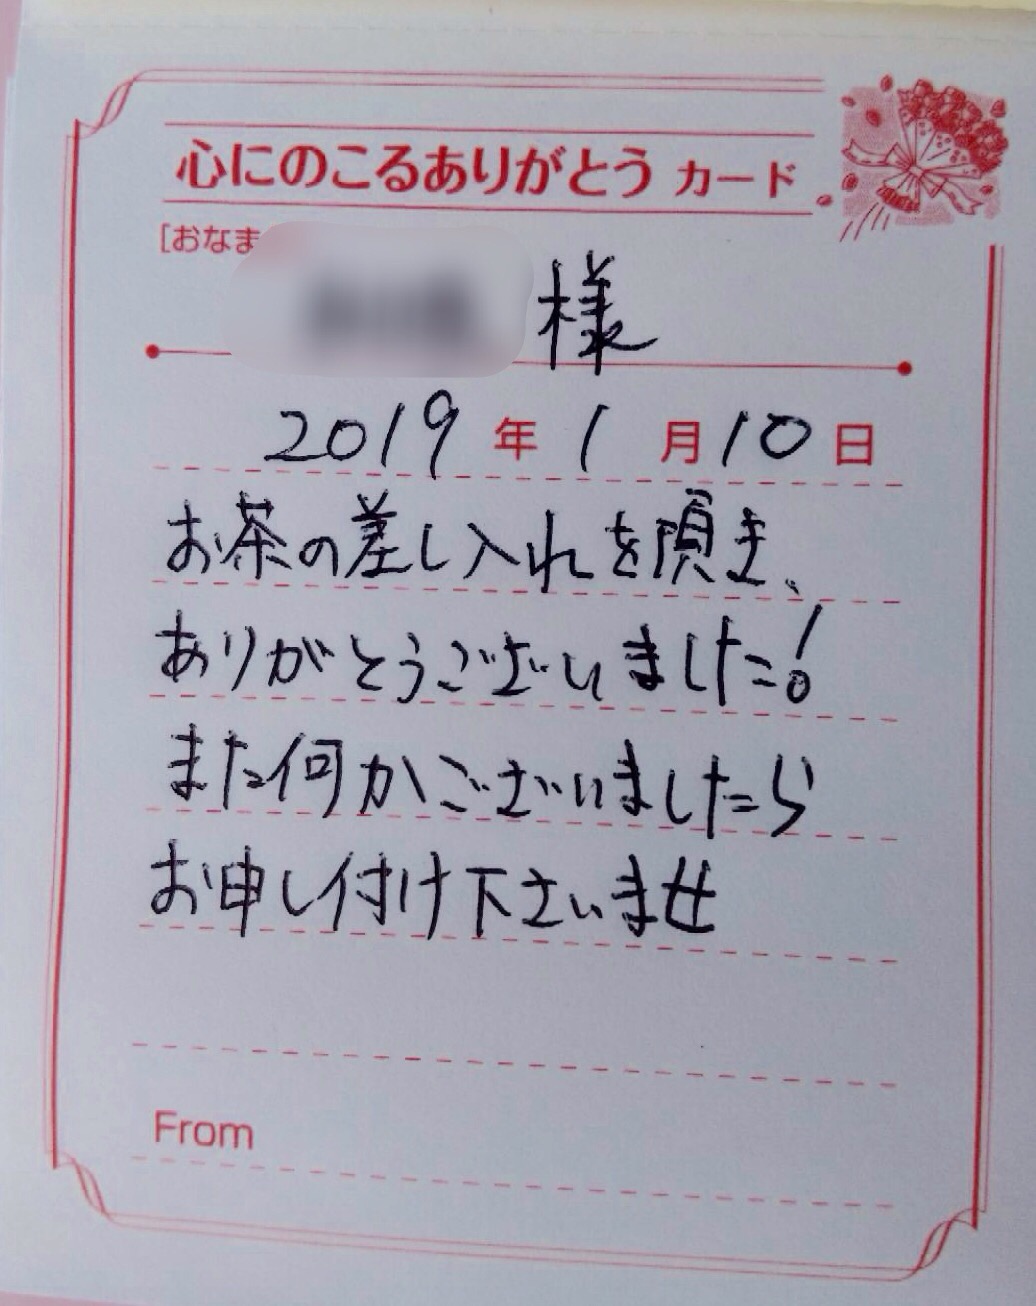 心にのこるありがとう カード
[おなま
様
2019年1月10日
お茶の差し入れを頂き、
ありがとうございました!
また何かございましたら
お申し付け下さいませ
From